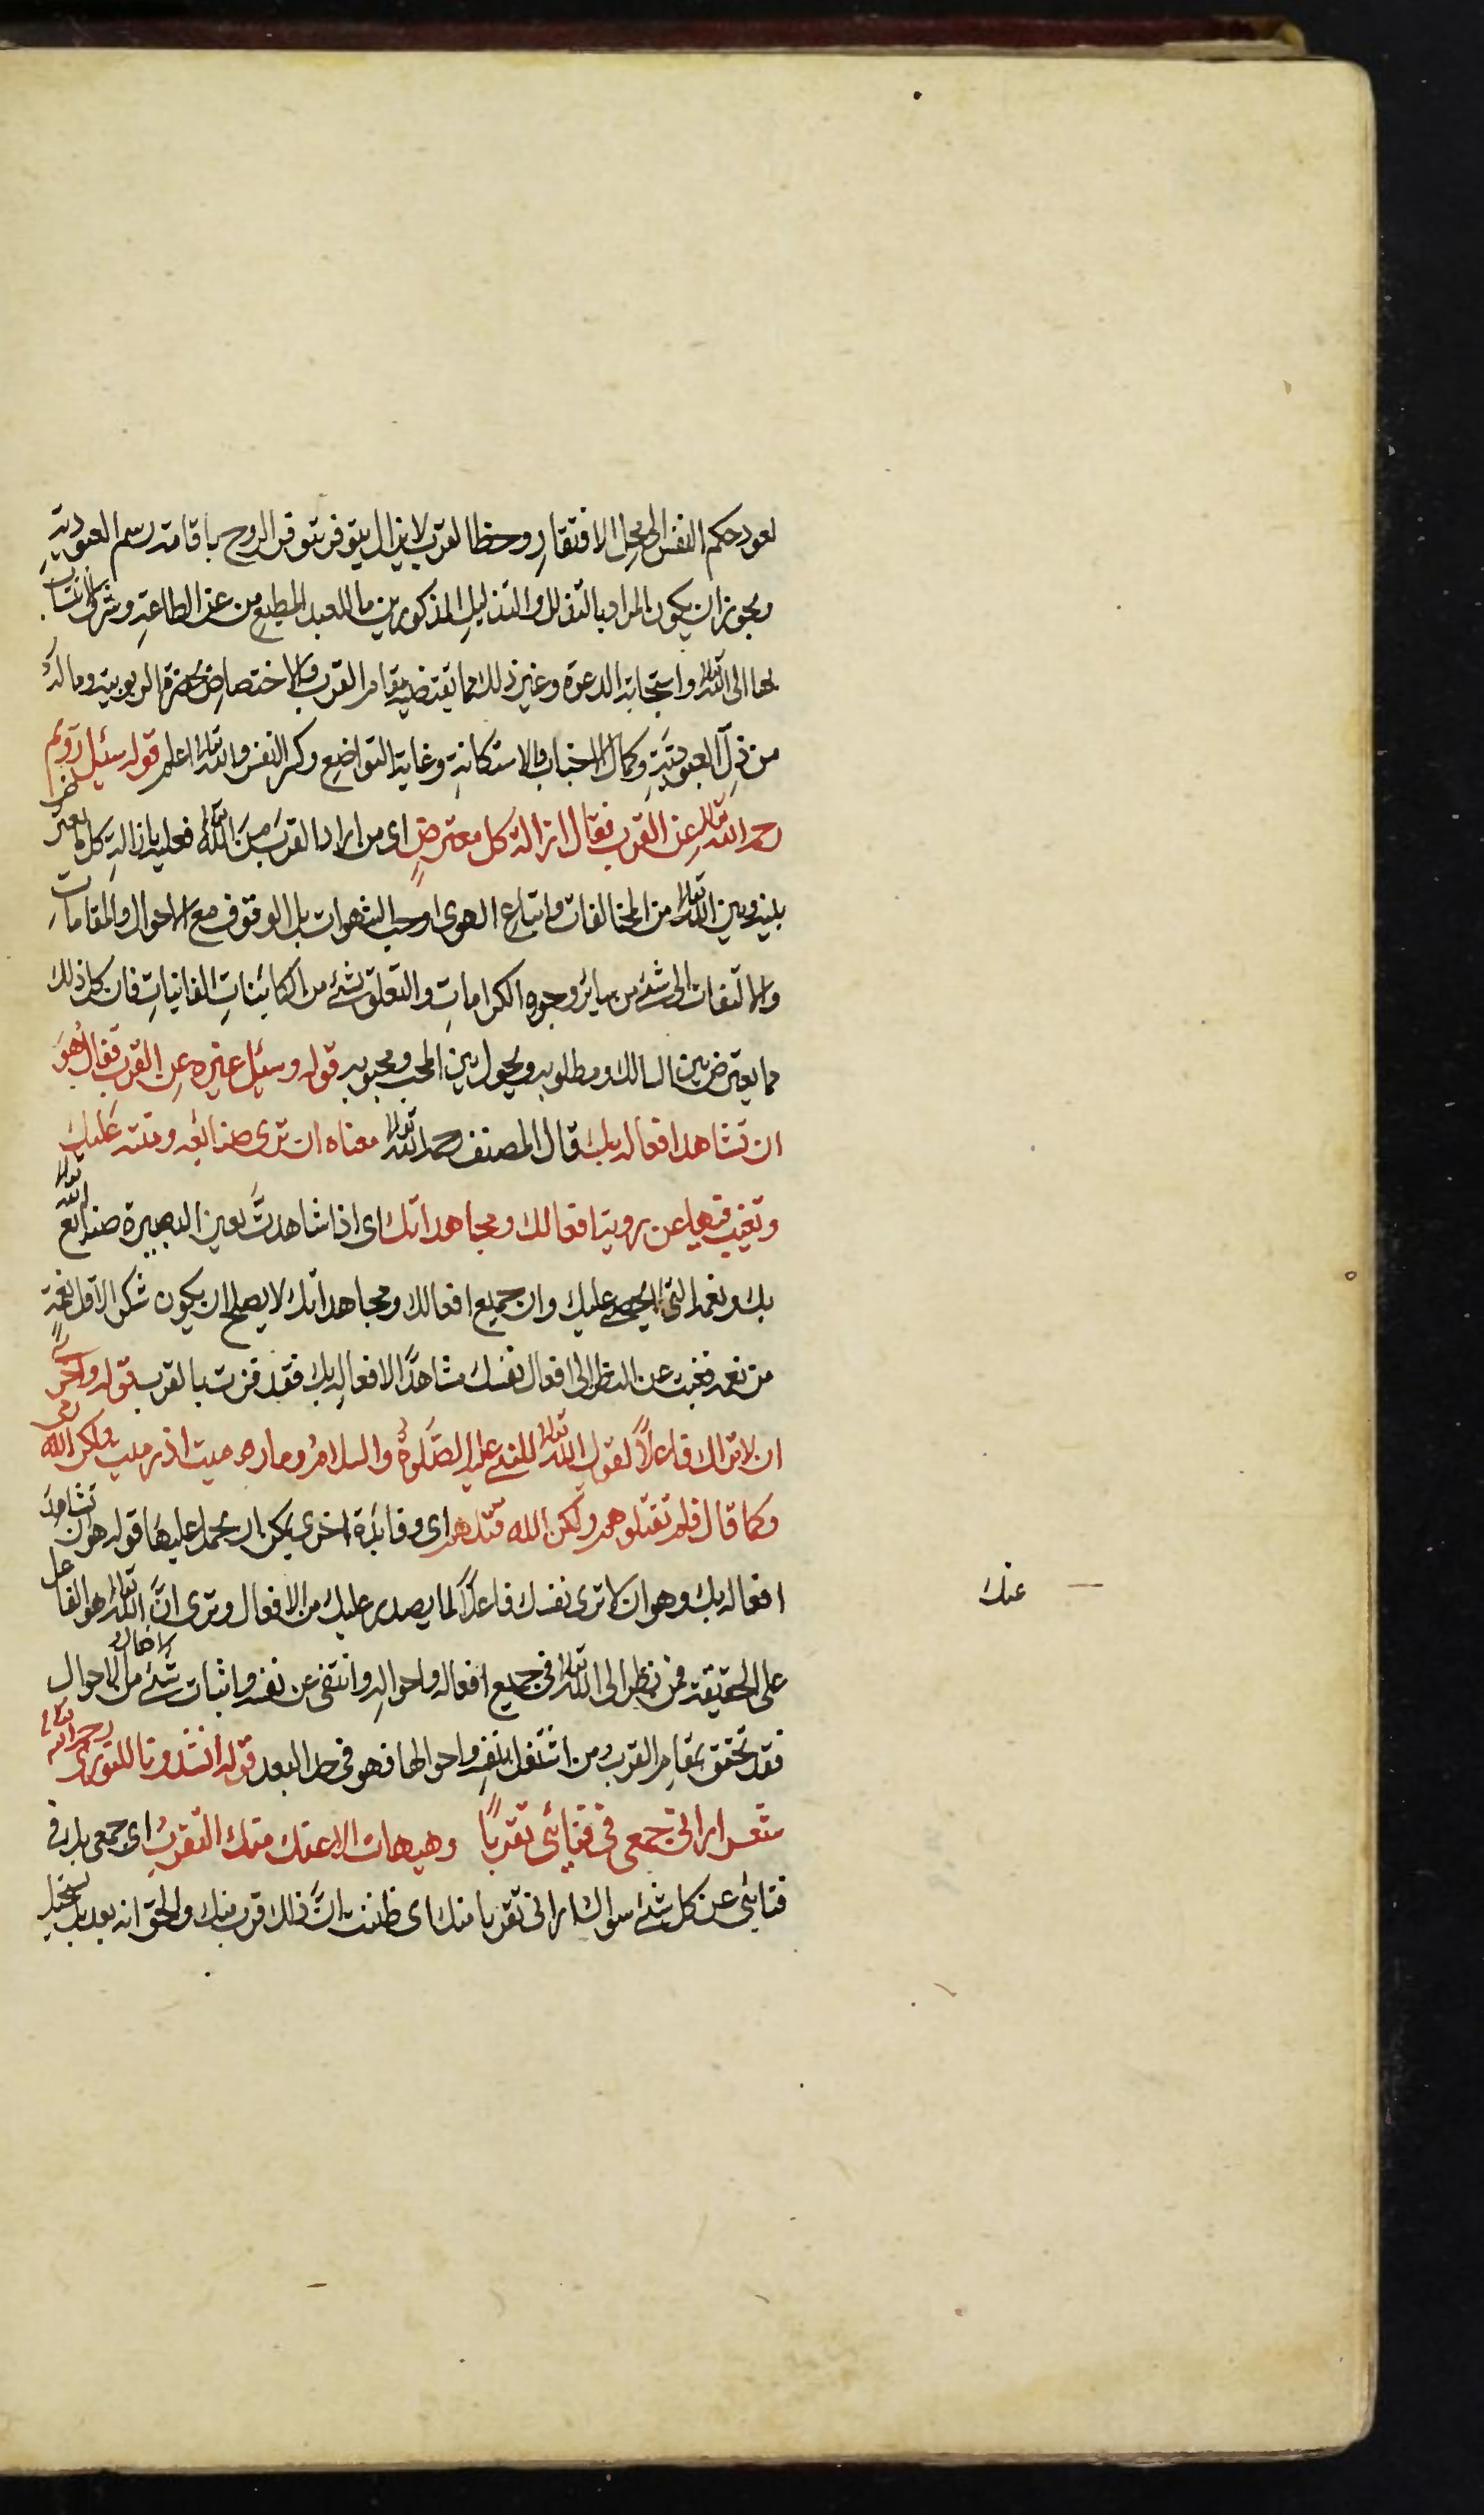 لعود حكم النفس الى محل الافتقارِ وحظ القرب لا يزال يتوفر بتوفر الروح باقامة رسم العبوديةِ
ويجوز ان يكون المراد بالتذلل والتذليلِ المذكورين ما للعبد المطيعِ من عز الطاعةِ وشرف الانتسابِ
بها الى الله تعالى واستجابة الدعوة وغير ذلك مما يقتضيه مقام القرب والاختصاصِ بحضرة الربوبية وما له
من ذلِّ العبوديّةِ وكمال الاخبات والاستكانةِ وغاية التواضع وكسر النفس والله تعالى اعلم قوله سئل رُويم
رحمه الله تعالى عن القرب فقال ازالة كل معترضٍ اى من اراد القربَ من الله تعالى فعليه بازالةِ كل ما يعترض
بينه وبين الله تعالى من المخالفات واتباع الهوى او حب الشهوات بل الوقوف مع الاحوال والمقاماتِ
والالتفات الى شئ من سائر وجوه الكراماتِ والتعلق بشئ من الكائيناتِ الفانياتِ فان كل ذلك
مما يعترض بين السالك ومطلوبه ويحول بين المحب ومحبوبه قوله وسئل غيره عن القرب فقال هوَ
ان تشاهد افعاله بك قال المصنف رحمه الله تعالى معناه ان ترى صنائعه ومننه عَليك
وتغيب فيها عن روية افعالك ومجاهداتك اى اذا شاهدتَ بعين البصيرة صنائع الله تعالى
بك ونعمه التى لا تحصى عليك وان جميع افعالك ومجاهداتك لا يصلح ان يكون شكرا لاقل نعمة
من نعمه فغبت عن النظر الى افعال نفسك مشاهدًا لافعالِه بك فقد فزت بالقرب قوله واخرى
ان لا تراك فاعلاً لقول الله تعالى للنبى عليه الصَّلوةُ والسلامُ وما رميت اذ رميت ولكن الله رمى
وكما قال فلم تقتلوهم ولكن الله قتلهم اى وفائدة اخرى يمكن ان يحمل عليها قوله هو ان تشاهد
افعاله بك وهو ان لا ترى نفسك فاعلاً لما يصدر عليك من الافعال وترى انَّ الله تعالى هو الفاعل
عنك
على الحقيقة فمن نظر الى الله تعالى فى جميع افعاله واحوالِه وانتفى عن نفسه واثبات شئ من الافعال والاحوال
فقد تحقق بمقام القرب ومن اشتغل بنفسه واحوالها فهو فى حد البعد قوله انشدونا للنورى رحمه الله تعالى
شعر ارانى جمعى فى فنائى تقربًا وهيهات الا عنك منك التقربُ اى جمعى بك فى
فنائى عن كل شئ سواك ارانى تقربا منك اى ظننت انَّ ذلك قرب منك والحق انه بعد بل يستحيل